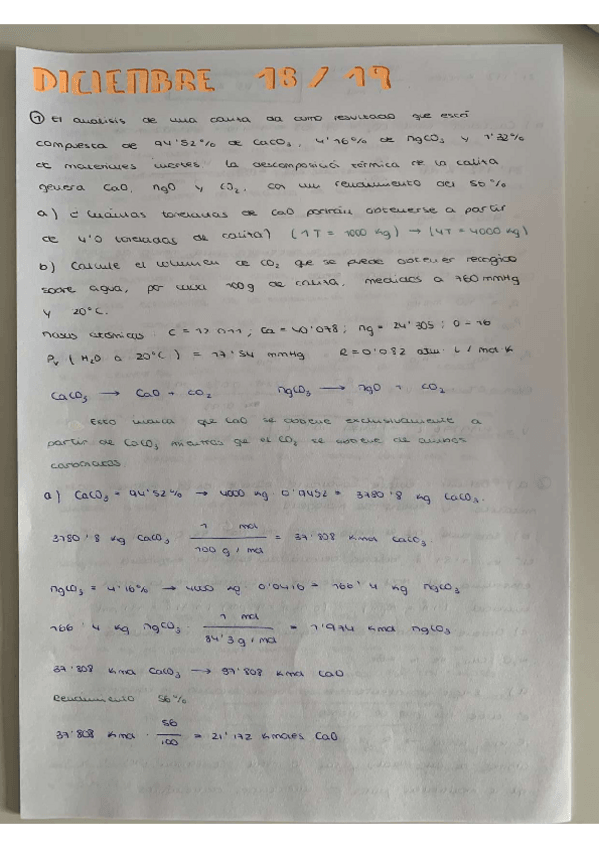 DICIEMBRE 18/19
① El analisis de una calita da como resultado que está
compuesta de 94'52% de CaCO3, 4'16% de MgCO3 y 1'32%
de materiales inertes. La descomposición térmica de la calita
genera CaO, MgO y CO2, con un rendimiento del 56%
a) ¿Cuántas toneladas de CaO podrán obtenerse a partir
de 4'0 toneladas de calita? (1T = 1000 kg) → (4T = 4000 kg)
b) Calcule el volumen de CO2 que se puede obtener recogido
sobre agua, por cada 100g de calita, medidos a 760 mmHg
y 20°C.
Masas atómicas: C = 12'011; Ca = 40'078; Mg = 24'305; O = 16
Pv (H2O a 20°C) = 17'54 mmHg R = 0'082 atm · L / mol K
CaCO3 → CaO + CO2 MgCO3 → MgO + CO2
Esto indica que CaO se obtiene exclusivamente a
partir de CaCO3 mientras qe el CO2 se obtiene de ambos
carbonatos.
a) CaCO3 = 94'52% → 4000 kg · 0'9452 = 3780'8 kg CaCO3.
3780'8 kg CaCO3 · 1 mol / 100 g/mol = 37'808 Kmol CaCO3
MgCO3 = 4'16% → 4000 kg · 0'0416 = 166'4 kg MgCO3
166'4 kg MgCO3 · 1 mol / 84'3 g/mol = 1'974 Kmol MgCO3
37'808 Kmol CaCO3 → 37'808 Kmol CaO
Rendimiento 56%
37'808 Kmol · 56/100 = 21'172 Kmoles CaO